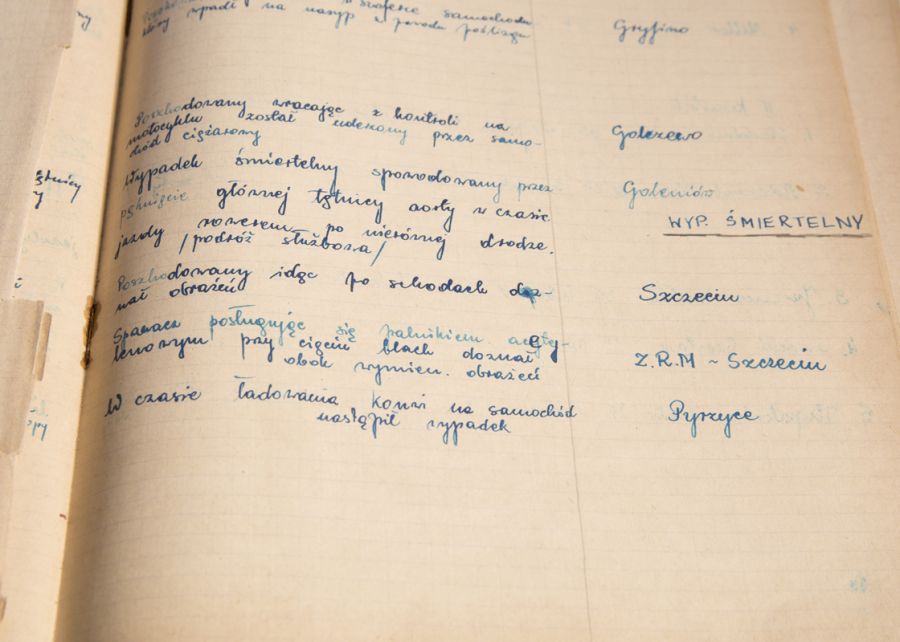 w szoferce samochodu
który wpadł na nasyp z powodu poślizgu
Gryfino
Poszkodowany wracając z kontroli na
motocyklu został uderzony przez samo-
chód ciężarowy
Golczewo
Wypadek śmiertelny spowodowany przez
pęknięcie głównej tętnicy aorty w czasie
jazdy rowerem po nierównej drodze.
/podróż służbowa/
Goleniów
WYP. ŚMIERTELNY
Poszkodowany idąc po schodach doz-
nał obrażeń
Szczecin
Spawacz posługując się palnikiem acety-
lenowym przy cięciu blach doznał
obok wymien. obrażeń
Z.R.M - Szczecin
W czasie ładowania konwi na samochód
nastąpił wypadek
Pyrzyce